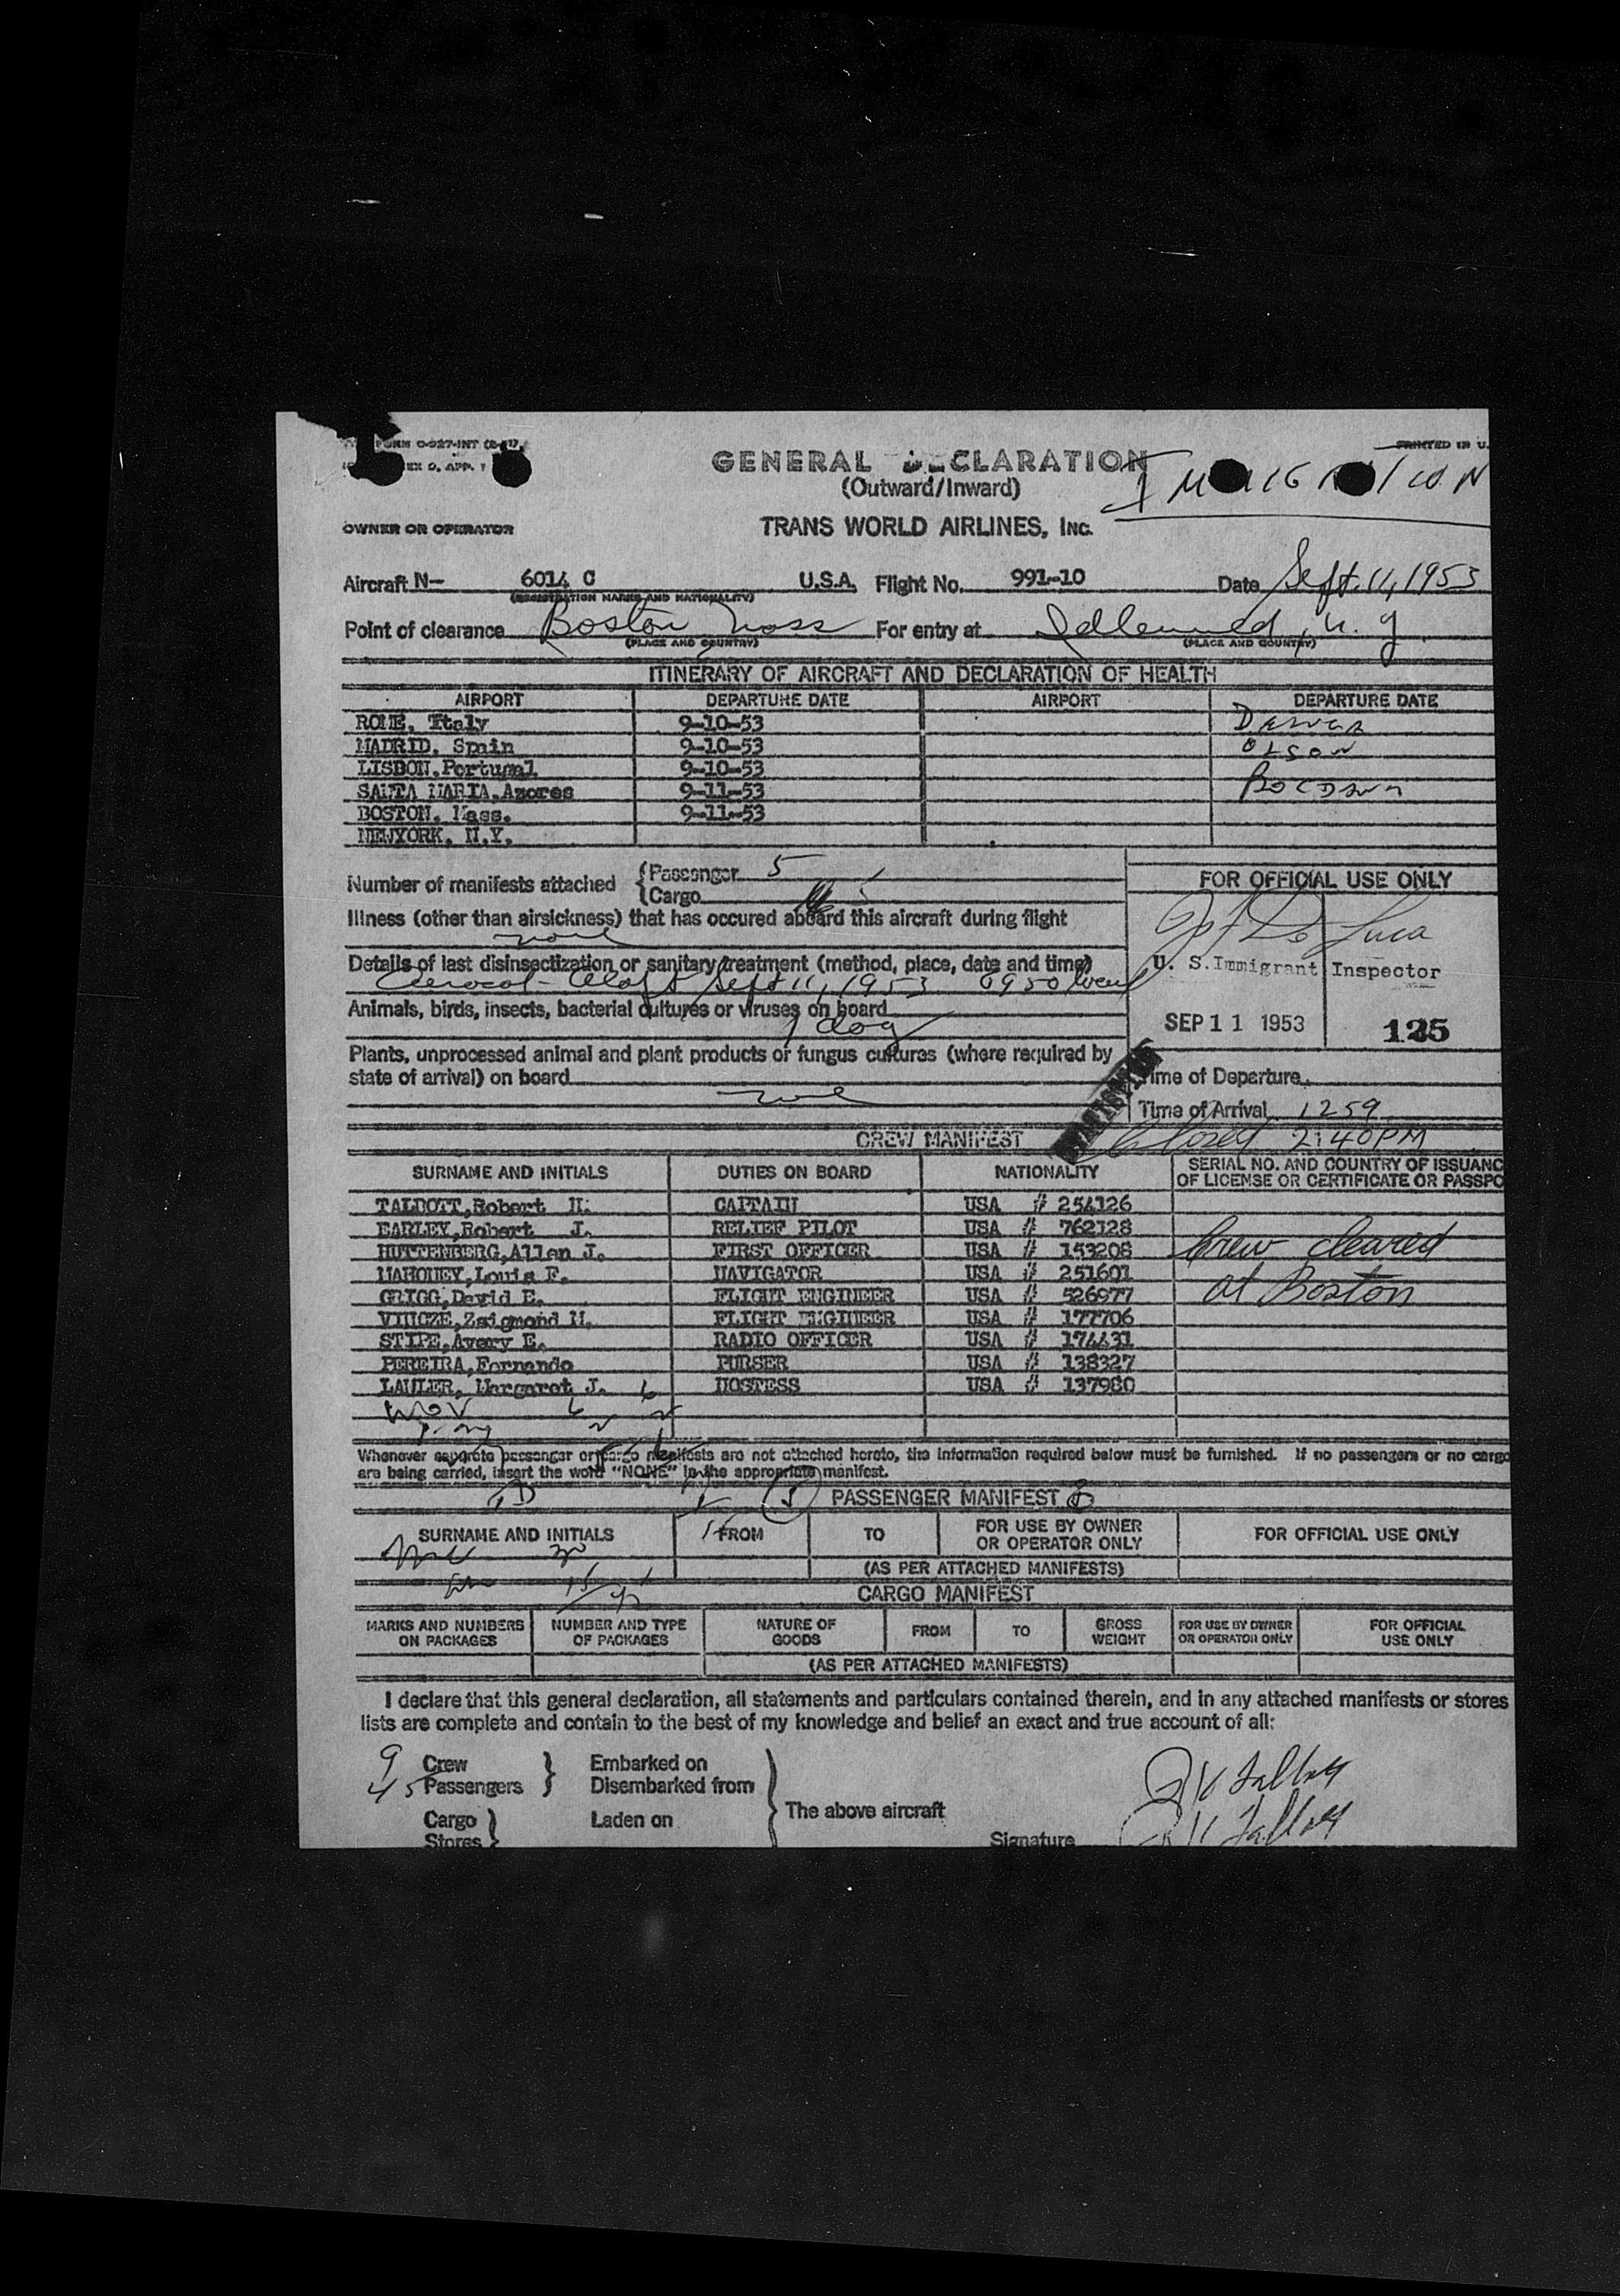 FORM C-927-INT
GENERAL DECLARATION
(Outward/Inward)
PRINTED IN U.
OWNER OR OPERATOR
TRANS WORLD AIRLINES, INC.
Aircraft N- 6014 C U.S.A. Flight No. 991-10 Date Sept. 11, 1953
(REGISTRATION MARKS AND NATIONALITY)
Point of clearance Boston Mass For entry at Idlewild, N. Y
(PLACE AND COUNTRY) (PLACE AND COUNTRY)
ITINERARY OF AIRCRAFT AND DECLARATION OF HEALTH
AIRPORT DEPARTURE DATE AIRPORT DEPARTURE DATE
ROME, Italy 9-10-53
MADRID, Spain 9-10-53 OLSON
LISBON, Portugal 9-10-53
SANTA MARIA, Azores 9-11-53
BOSTON, Mass. 9-11-53
NEWYORK, N.Y.
Number of manifests attached {Passenger 5
{Cargo
FOR OFFICIAL USE ONLY
Illness (other than airsickness) that has occured aboard this aircraft during flight
none
Details of last disinsectization or sanitary treatment (method, place, date and time)
Sept 11, 1953 0950
U. S. Immigrant Inspector
Animals, birds, insects, bacterial cultures or viruses on board
1 dog
SEP 11 1953 125
Plants, unprocessed animal and plant products or fungus cultures (where required by
state of arrival) on board
none
Time of Departure
Time of Arrival 1259
Closed 2:40 PM
CREW MANIFEST
SURNAME AND INITIALS DUTIES ON BOARD NATIONALITY SERIAL NO. AND COUNTRY OF ISSUANC
OF LICENSE OR CERTIFICATE OR PASSPO
TALBOTT, Robert H. CAPTAIN USA # 254126
EARLEY, Robert J. RELIEF PILOT USA # 762128
HUTTENBERG, Allen J. FIRST OFFICER USA # 153208 Crew cleared
MAHONEY, Louis F. NAVIGATOR USA # 251601
GRIGG, David E. FLIGHT ENGINEER USA # 526977 at Boston
VINCZE, Zsigmond M. FLIGHT ENGINEER USA # 177706
STIPE, Avery E. RADIO OFFICER USA # 174431
PEREIRA, Fernando PURSER USA # 138327
LAULER, Margaret J. HOSTESS USA # 137980
Whenever separate passenger or cargo manifests are not attached hereto, the information required below must be furnished. If no passengers or no cargo
are being carried, insert the word "NONE" in the appropriate manifest.
PASSENGER MANIFEST
SURNAME AND INITIALS FROM TO FOR USE BY OWNER
OR OPERATOR ONLY FOR OFFICIAL USE ONLY
(AS PER ATTACHED MANIFESTS)
CARGO MANIFEST
MARKS AND NUMBERS
ON PACKAGES NUMBER AND TYPE
OF PACKAGES NATURE OF
GOODS FROM TO GROSS
WEIGHT FOR USE BY OWNER
OR OPERATOR ONLY FOR OFFICIAL
USE ONLY
(AS PER ATTACHED MANIFESTS)
I declare that this general declaration, all statements and particulars contained therein, and in any attached manifests or stores
lists are complete and contain to the best of my knowledge and belief an exact and true account of all:
9 Crew } Embarked on
45 Passengers } Disembarked from
The above aircraft
Cargo } Laden on
Stores } Signature